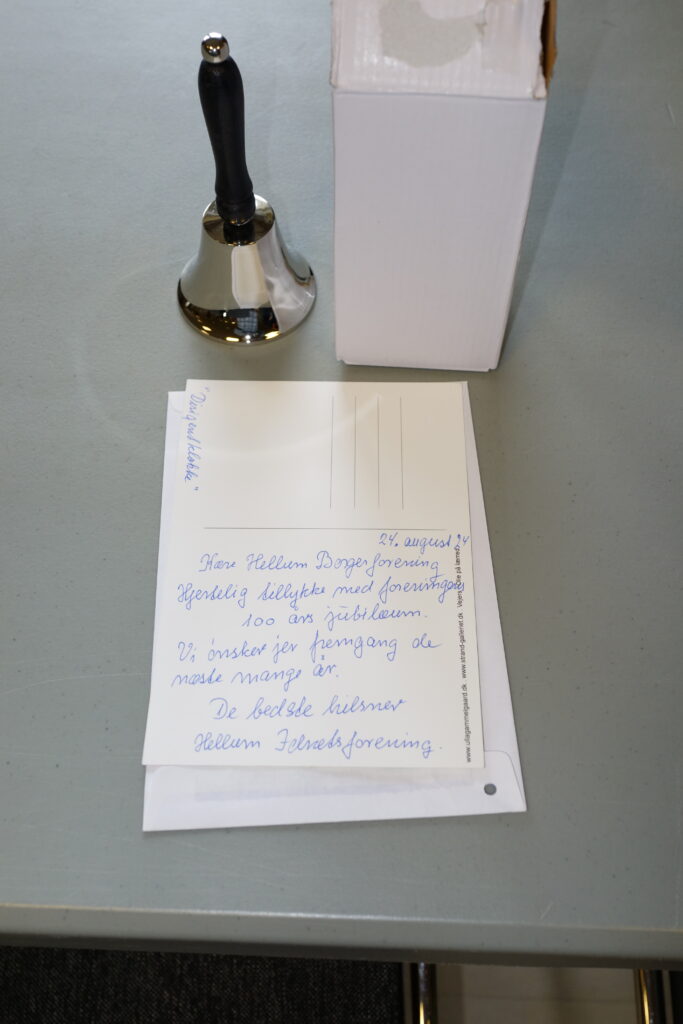 "Dirigentklokke"
24. august 24
Kære Hellum Borgerforening
Hjertelig tillykke med foreningens
100 års jubilæum.
Vi ønsker jer fremgang de
næste mange år.
De bedste hilsner
Hellum Idrætsforening.
www.ullagammelgaard.dk . www.strand-galleriet.dk . på lærred